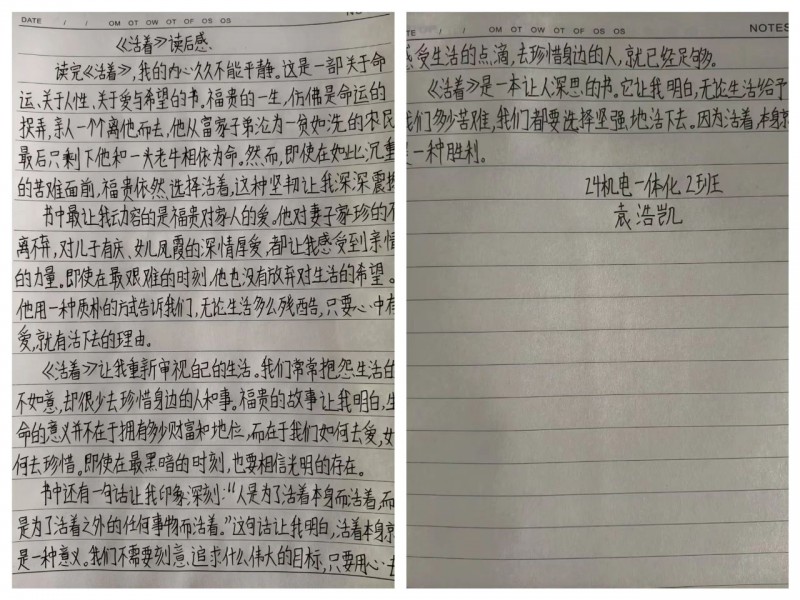 DATE / / OM OT OW OT OF OS OS NO
《活着》读后感
读完《活着》,我的内心久久不能平静。这是一部关于命
运、关于人性、关于爱与希望的书。福贵的一生,仿佛是命运的
捉弄,亲人一个个离他而去,他从富家子弟沦为一贫如洗的农民
最后只剩下他和一头老牛相依为命。然而,即使在如此沉重
的苦难面前,福贵依然选择活着,这种坚韧让我深深震撼
书中最让我动容的是福贵对家人的爱。他对妻子家珍的不
离不弃,对儿子有庆、女儿凤霞的深情厚爱,都让我感受到亲情
的力量。即使在最艰难的时刻,他也没有放弃对生活的希望。
他用一种质朴的方式告诉我们,无论生活多么残酷,只要心中有
爱,就有活下去的理由。
《活着》让我重新审视自己的生活。我们常常抱怨生活的
不如意,却很少去珍惜身边的人和事。福贵的故事让我明白,生
命的意义并不在于拥有多少财富和地位,而在于我们如何去爱,如
何去珍惜。即使在最黑暗的时刻,也要相信光明的存在。
书中还有一句话让我印象深刻:“人是为了活着本身而活着,而
是为了活着之外的任何事物而活着。”这句话让我明白,活着本身就
是一种意义。我们不需要刻意追求什么伟大的目标,只要用心去
DATE / / OM OT OW OT OF OS OS NOTES
感受生活的点滴,去珍惜身边的人,就已经足够。
《活着》是一本让人深思的书。它让我明白,无论生活给予
我们多少苦难,我们都要选择坚强地活下去。因为活着,本身就
是一种胜利。
24机电一体化2班
袁浩凯